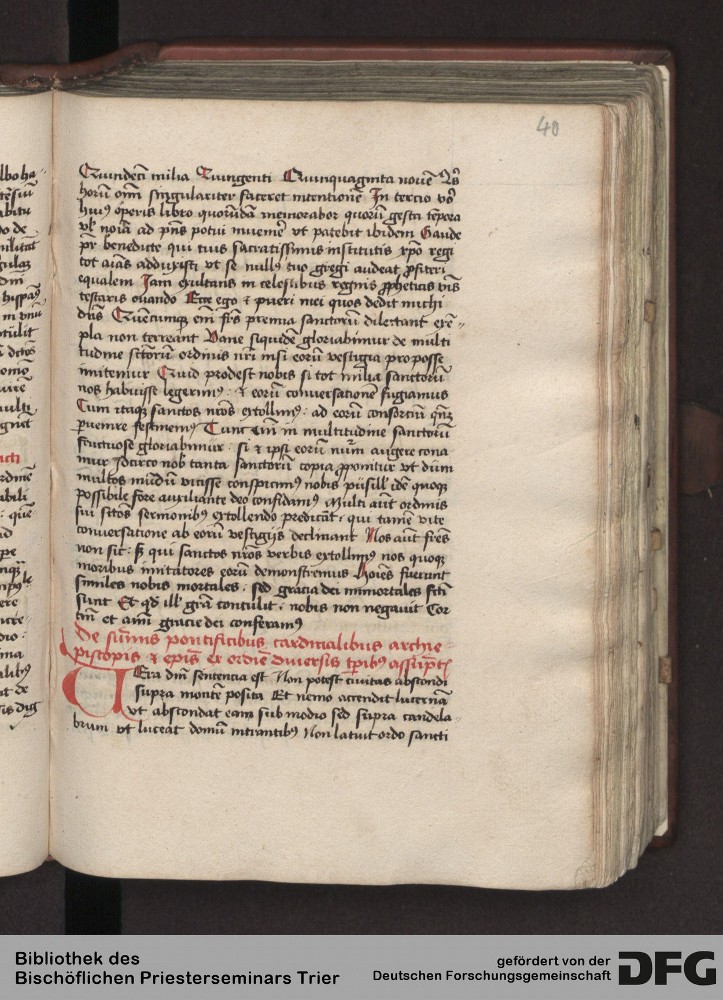 40
Quindeci milia Quingenti Quinquaginta novē
horū om̄ singulariter faceret intentionē In tercio
huiꝰ operis libro quorūdā memorabor quorū gesta tēpora
et noīa ad pn̄s potui invenire vt patebit ibidem Gaude
pr̄ benedicte qui tuis sacratissimis institutis xp̄o regi
tot aīas adduxisti vt se nullꝰ tuo gregi audeat ꝓfiteri
equalem Jam exultans in celestibus regnis ꝓpheticis
testaris ouando Ecce ego et pueri mei quos dedit michi
dn̄s Quēcumqꝫ em̄ frēs premia sanctorū dilectant exē-
pla non terreant Vane siquidē gloriabimur de multi
tudine sctōrū ordinis nr̄i nisi eorū vestigia pro posse
imitemur Quid prodest nobis si tot milia sanctorū
nos habuisse legerimꝰ et eorū conversationē fugiamus
Cum itaqꝫ sanctos nr̄os extollimꝰ ad eorū consorciū
ꝑvenire festinemꝰ Tunc em̄ in multitudine sanctorū
fructuose gloriabimur si et ipsi eorū nūm augere cona
mur Idcirco nob̄ tanta sanctorū copia ꝓponitur vt dum
multos mūdū vicisse conspicimꝰ nobis pusill idē quoqꝫ
possibile fore auxiliante deo confidamꝰ Multi aūt ordinis
sui sctōs sermonibꝰ extollendo predicāt qui tamē vite
conversatione ab eorū vestigijs declinant Nos aūt frēs
non sic sꝫ qui sanctos nr̄os verbis extollimꝰ nos quoqꝫ
moribus imitatores eorū demonstremus Hoīes fuerunt
similes nobis mortales sed gracia dei immortales fcti
sunt Et qd ill' grā contulit nobis non negavit Cor
tm̄ et aīm gracie dei conferamꝰ
De sūmis pontificibus cardinalibus archie-
piscopis et ep̄is ex ordīe diversis tp̄ibꝰ assūpt
Vera dnī sentencia est Non potest civitas abscondi
supra montē posita Et nemo accendit lucernā
vt abscondat eam sub modio sed supra candela-
brum vt luceat domū intrantibꝰ Non latuit ordo sancti
Bibliothek des
Bischöflichen Priesterseminars Trier
gefördert von der
Deutschen Forschungsgemeinschaft
DFG